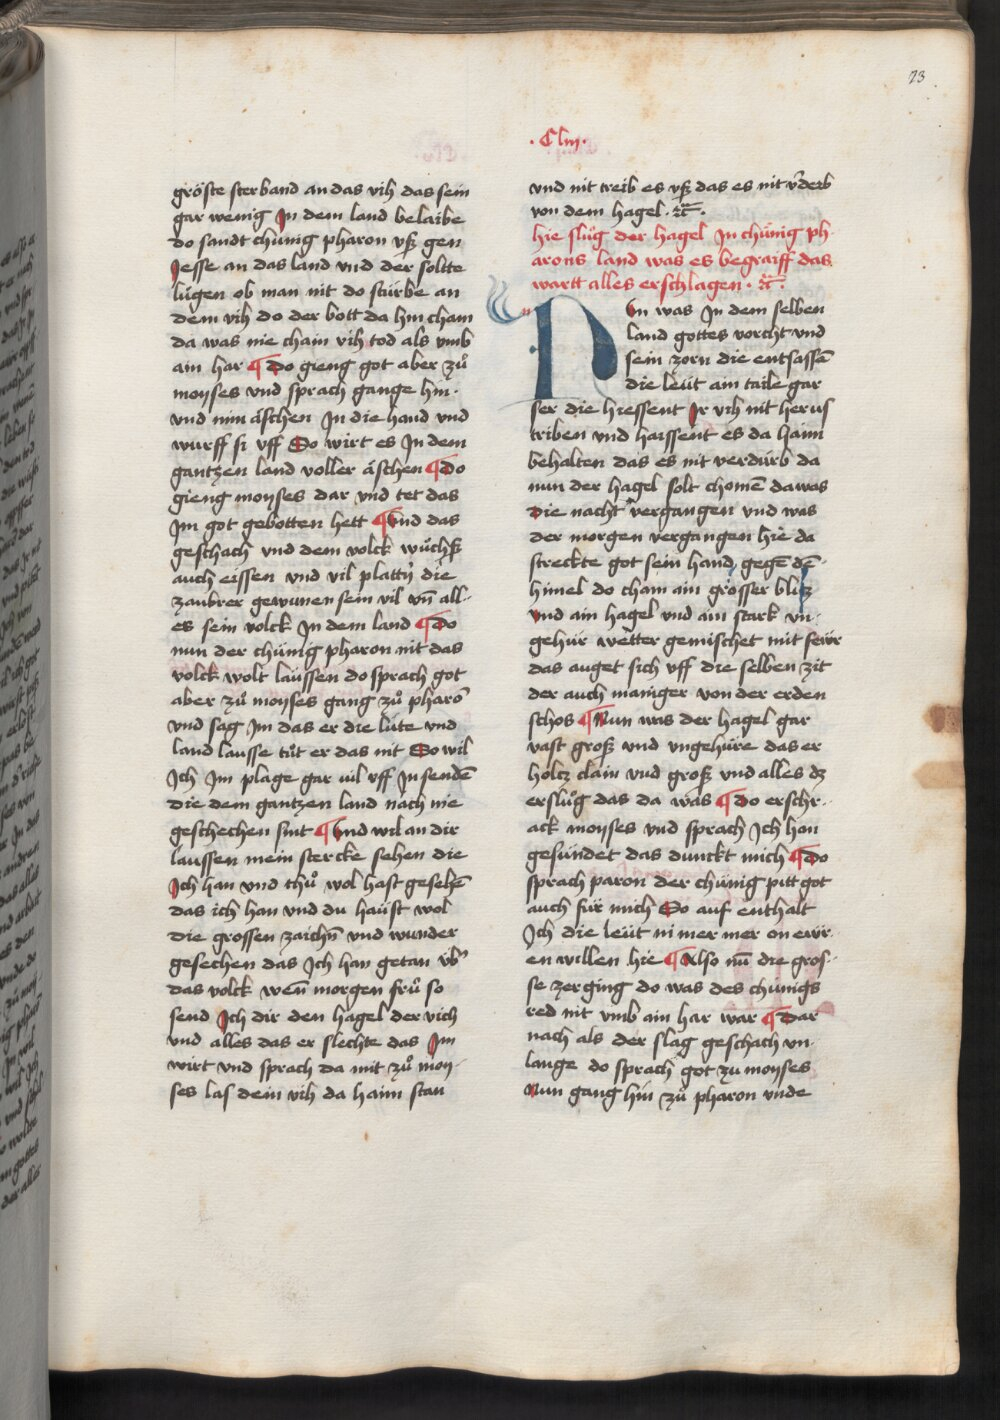 73
· Clııı ·
gröste sterband an das vih das sein
gar wenig Jn dem land belaibe
do sandt chünig pharon vß gen
Jesse an das land vnd der sollte
lůgen ob man nit do stürbe an
dem vih do der bott da hin cham
da was nie chain vih tod als vmb
ain har ¶ Do gieng got aber zů
moyses vnd sprach gange hin
vnd nim äschen Jn die hand vnd
wurff si vff So wirt es Jn dem
gantzen land voller äschen ¶ Do
gieng moyses dar vnd tet das
Jm got gebotten hett ¶ Vnd das
geschach vnd dem volck wůchß
auch eissen vnd vil plattn̈ die
zaubrer gewunen sein vil vn̄ all
es sein volck Jn dem land ¶ Do
nun der chünig pharon nit das
volck wolt laüssen do sprach got
aber zů moyses gang zů pharō
vnd sag Jm das er die lüte vnd
land lausse tůt er das nit So wil
Jch Jm plage gar vil vff Jn sendē
die dem gantzen land nach nie
geschechen sint ¶ Vnd wil an dir
laussen mein stercke sehen die
Jch han vnd thů wol hast gesehē
das ich han vnd du haüst wol
die grossen zaichn̄ vnd wunder
gesechen das Jch han getan vbʼ
das volck wen̄ morgen frů so
send Jch dir den hagel der vich
vnd alles das er slechte das Jm
wirt vnd sprach da mit zů moy-
ses las dein vih da haim stan
vnd nit treib es vß das es nit v̓derb
von dem hagel · ꝛc̄ ·
hie slůg der hagel Jn chünig ph-
arons land was es begraiff das
wartt alles erschlagen · ꝛc̄ ·
Nun was Jn dem selben
land gottes vorcht vnd
sein zorn die entsassē
die leüt ain taile gar
ser die hiessent Jr vih nit herus
triben vnd haissent es da haim
behalten das es nit verdürb da
nun der hagel solt chomē da was
die nacht vergangen vnd was
der morgen vergangen hie da
streckte got sein hand gegē dē
himel do cham ain grosser blitz
vnd ain hagel vnd ain stark vn-
gehür wetter gemischet mit feür
das auget sich vff die selben zit
der auch maniger von der erden
schos ¶ Nun was der hagel gar
vast groß vnd vngehüre das er
holtz clain vnd groß vnd alles dz
erslůg das da was ¶ Do erschr-
ack moyses vnd sprach Jch han
gesündet das dunckt mich ¶ Do
sprach paron der chünig pitt got
auch für mich So auf enthalt
Jch die leüt nimer mer on ewr-
en willen hie ¶ Also nū die gros-
se zerging do was des chünigs
red nit vmb ain har war ¶ Dar
nach als der slag geschach vn-
lange do sprach got zu moyses
Nun gang hin zů pharon vnde